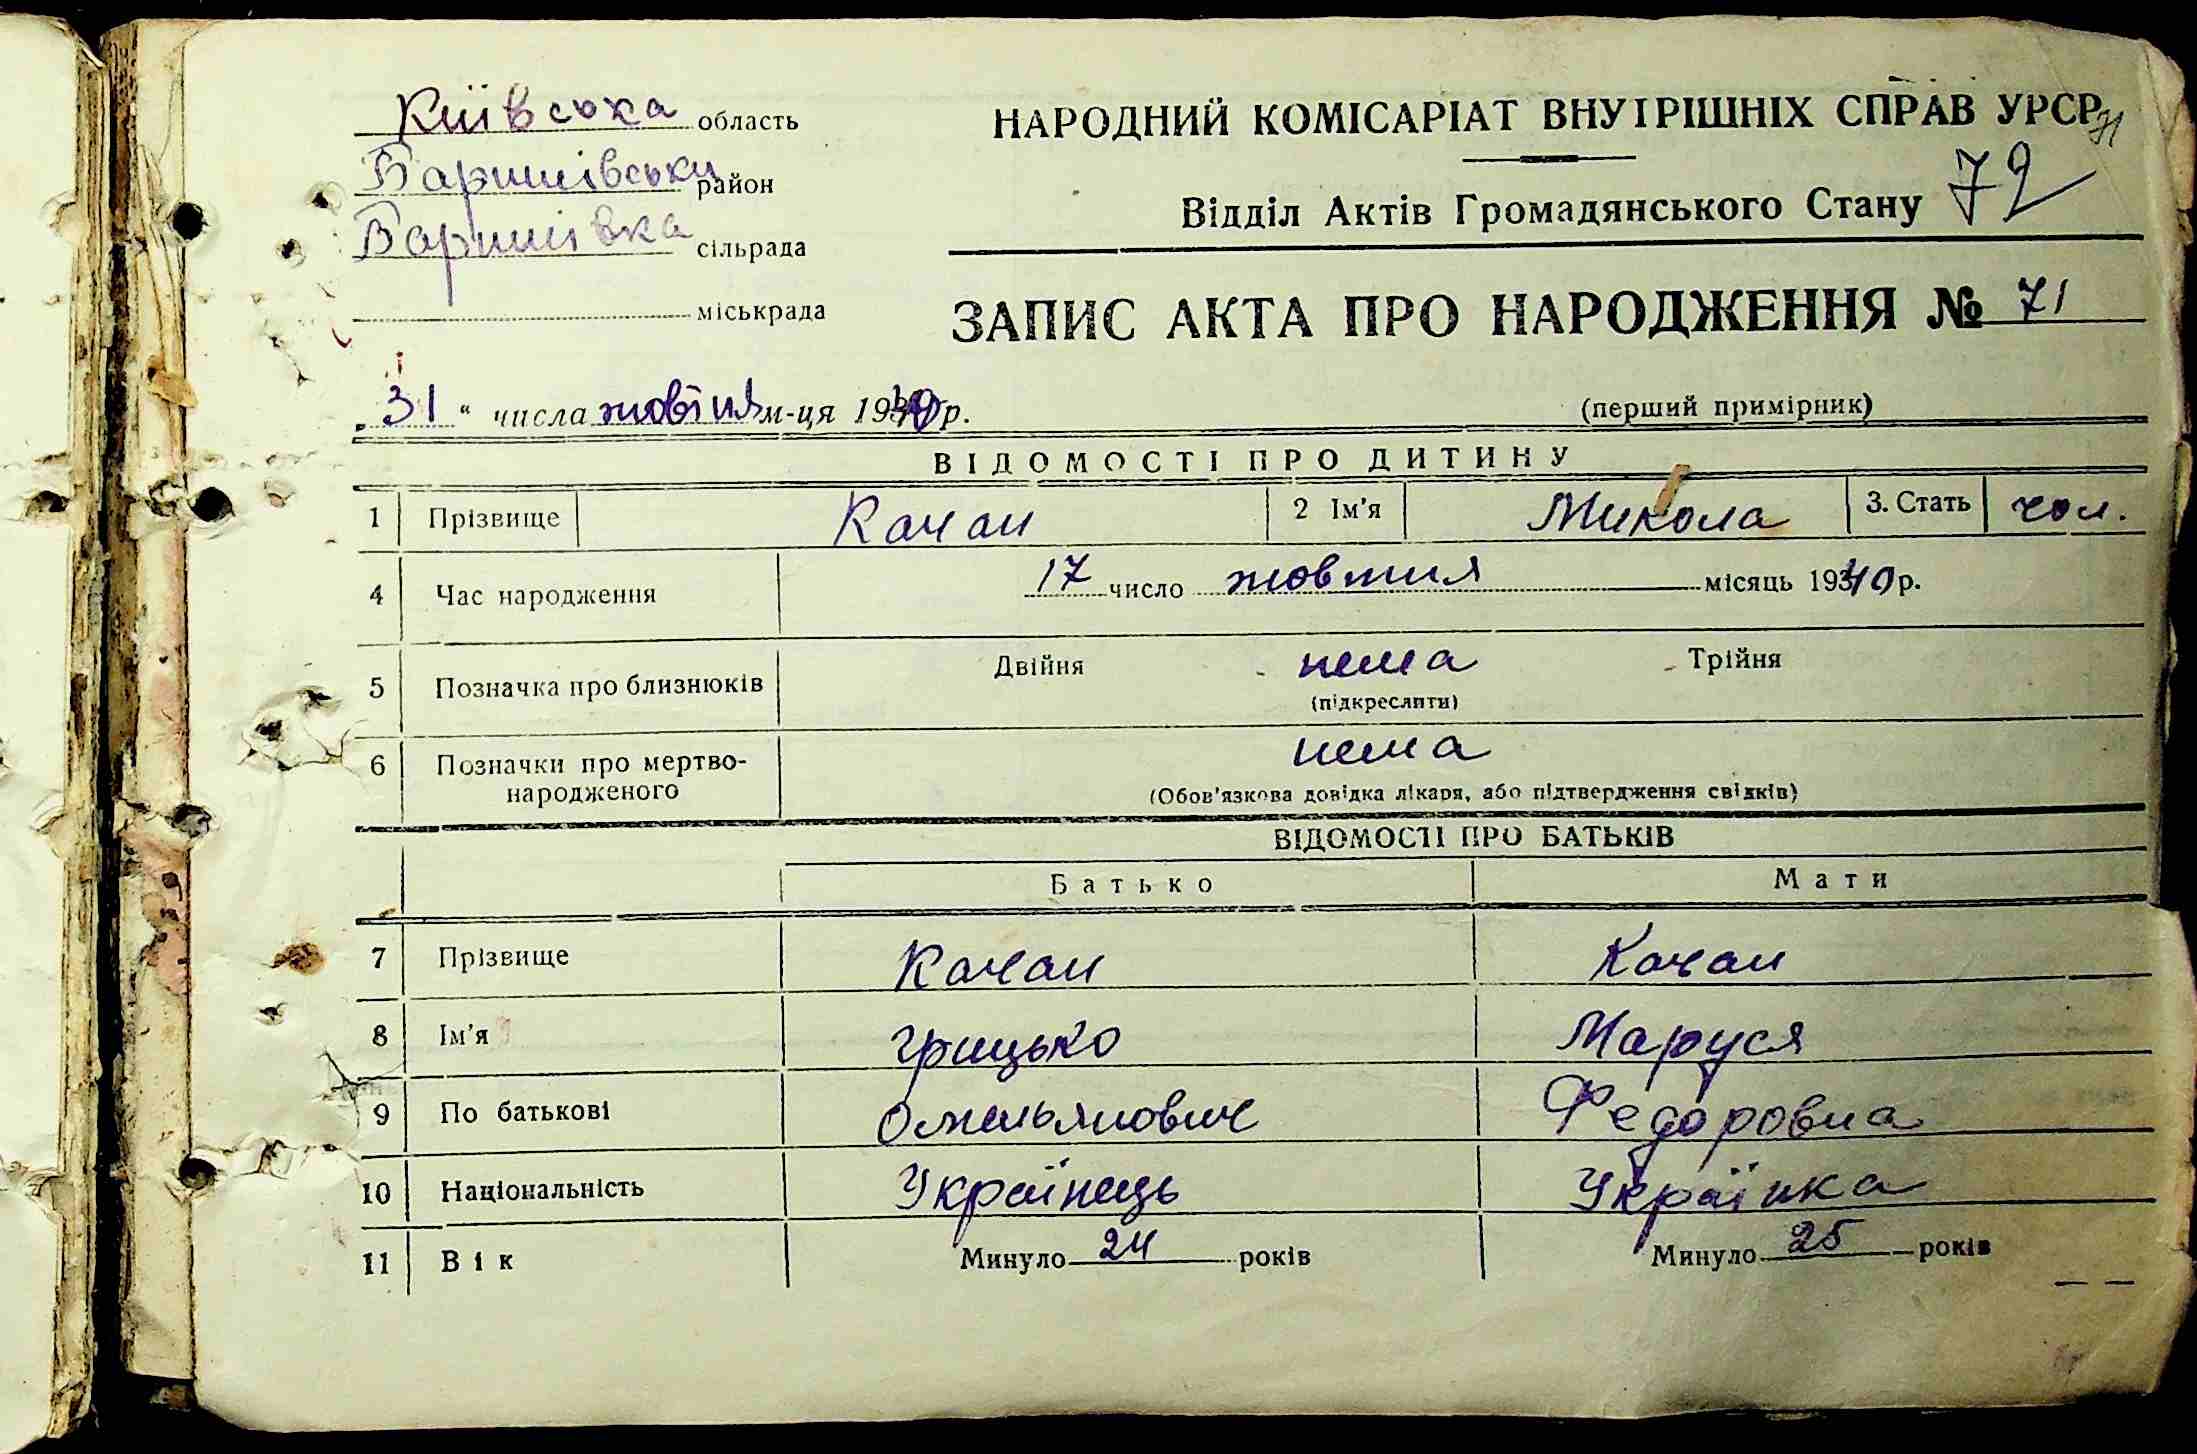 Київська область
Баришівськи район
Баришівка сільрада
міськрада
НАРОДНИЙ КОМІСАРІАТ ВНУТРІШНІХ СПРАВ УРСР
71
Відділ Актів Громадянського Стану 72
ЗАПИС АКТА ПРО НАРОДЖЕННЯ № 71
„31“ числа жовтня м-ця 1940 р.
(перший примірник)
ВІДОМОСТІ ПРО ДИТИНУ
1 Прізвище Качан 2 Ім'я Микола 3. Стать чол.
4 Час народження 17 число жовтня місяць 1940 р.
5 Позначка про близнюків Двійня нема Трійня
(підкреслити)
6 Позначки про мертво-
народженого нема
(Обов'язкова довідка лікаря, або підтвердження свідків)
ВІДОМОСТІ ПРО БАТЬКІВ
Батько Мати
7 Прізвище Качан Качан
8 Ім'я Грицько Маруся
9 По батькові Омельянович Федоровна
10 Національність Українець Українка
11 Вік Минуло 24 років Минуло 25 років